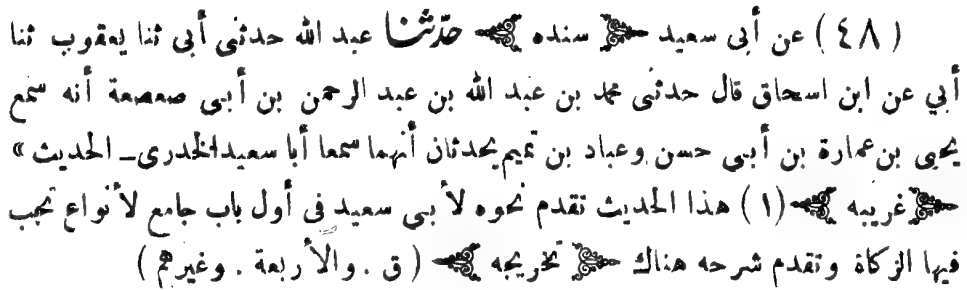 ( ٤٨ ) عن أبى سعيد ﴿ سنده ﴾ حدّثنا عبد الله حدثنى أبى ثنا يعقوب ثنا
أبي عن ابن اسحاق قال حدثنى محمد بن عبد الله بن عبد الرحمن بن أبى صعصعة أنه سمع
يحيى بن عمارة بن أبى حسن وعباد بن تميم يحدثان أنهما سمعا أبا سعيد الخدرى ـ الحديث »
﴿ غريبه ﴾ ( ١ ) هذا الحديث تقدم نحوه لأبى سعيد فى أول باب جامع لأنواع تجب
فيها الزكاة وتقدم شرحه هناك ﴿ تخريجه ﴾ ( ق . والأربعة . وغيرهم )